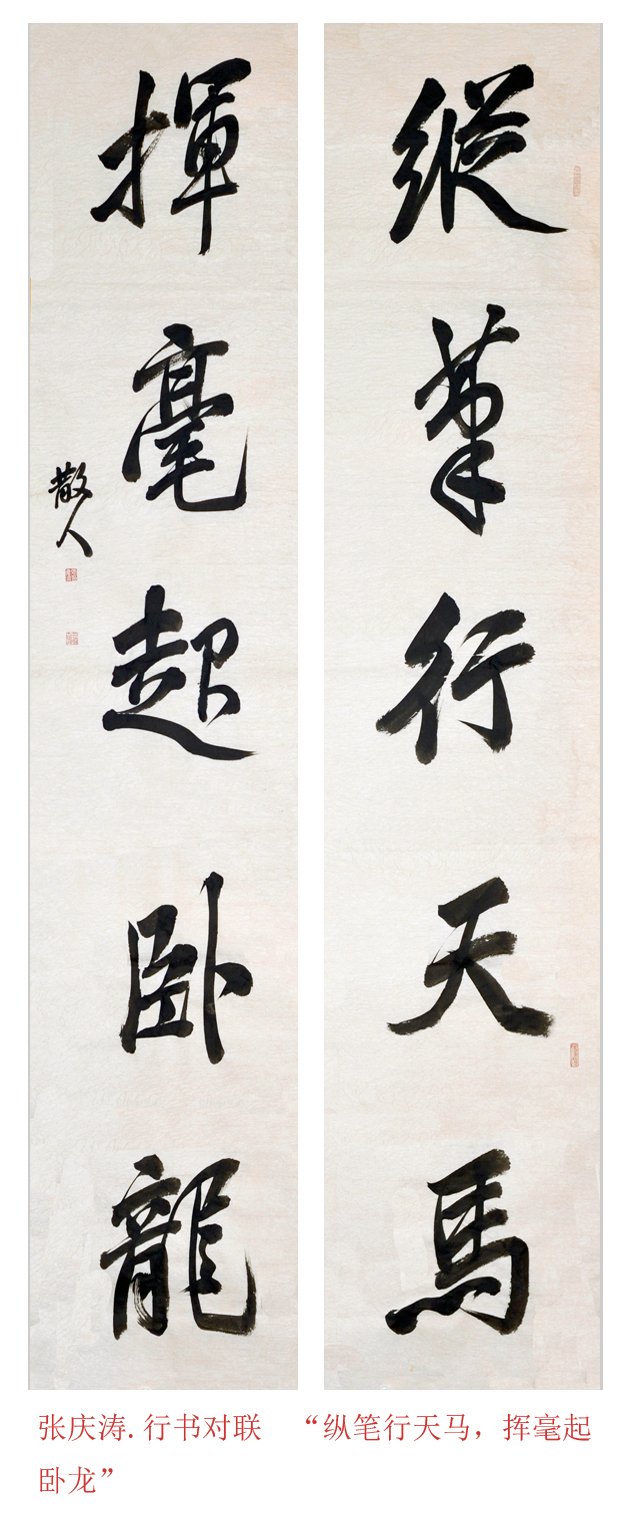 縱筆行天馬
揮毫起卧龍
散人
张庆涛.行书对联 “纵笔行天马，挥毫起
卧龙”